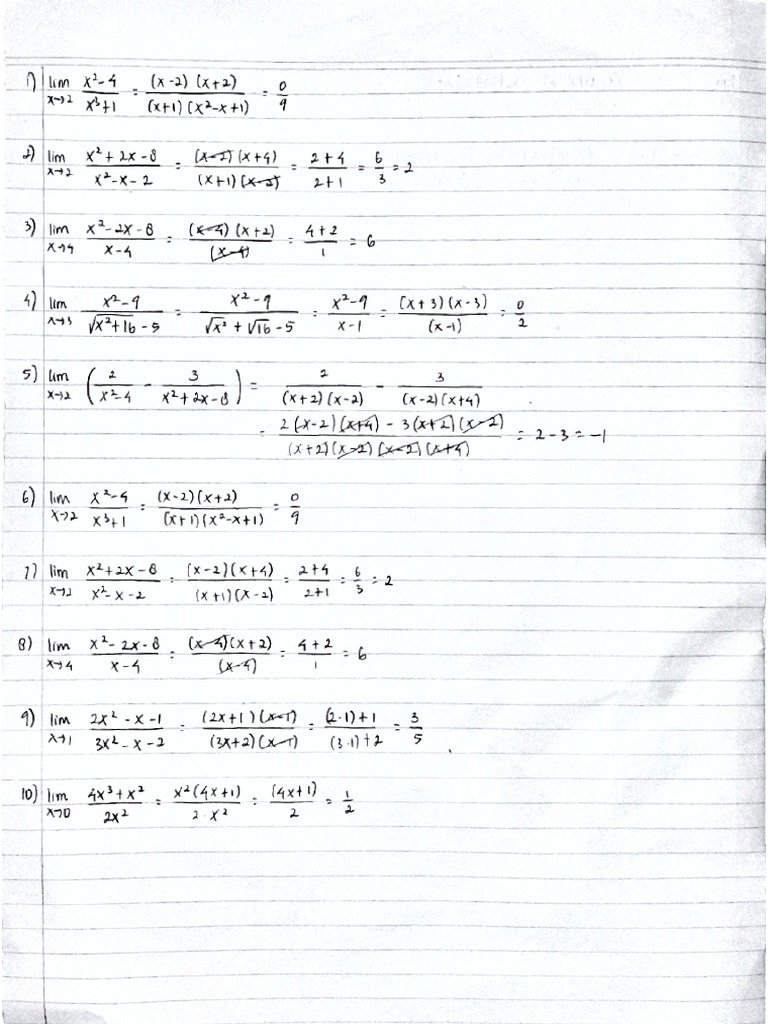 1) lim x→2 (x²-4)/(x³+1) = ((x-2)(x+2))/((x+1)(x²-x+1)) = 0/9
2) lim x→2 (x²+2x-8)/(x²-x-2) = ((x-2)(x+4))/((x+1)(x-2)) = (2+4)/(2+1) = 6/3 = 2
3) lim x→4 (x²-2x-8)/(x-4) = ((x-4)(x+2))/(x-4) = (4+2)/1 = 6
4) lim x→3 (x²-9)/(√(x²+16)-5) = (x²-9)/(√x²+√16-5) = (x²-9)/(x-1) = ((x+3)(x-3))/(x-1) = 0/2
5) lim x→2 (2/(x²-4) - 3/(x²+2x-8)) = 2/((x+2)(x-2)) - 3/((x-2)(x+4))
= (2(x-2)(x+4) - 3(x+2)(x-2))/((x+2)(x-2)(x-2)(x+4)) = 2-3 = -1
6) lim x→2 (x²-4)/(x³+1) = ((x-2)(x+2))/((x+1)(x²-x+1)) = 0/9
7) lim x→2 (x²+2x-8)/(x²-x-2) = ((x-2)(x+4))/((x+1)(x-2)) = (2+4)/(2+1) = 6/3 = 2
8) lim x→4 (x²-2x-8)/(x-4) = ((x-4)(x+2))/(x-4) = (4+2)/1 = 6
9) lim x→1 (2x²-x-1)/(3x²-x-2) = ((2x+1)(x-1))/((3x+2)(x-1)) = ((2·1)+1)/((3·1)+2) = 3/5
10) lim x→0 (4x³+x²)/(2x²) = (x²(4x+1))/(2·x²) = (4x+1)/2 = 1/2